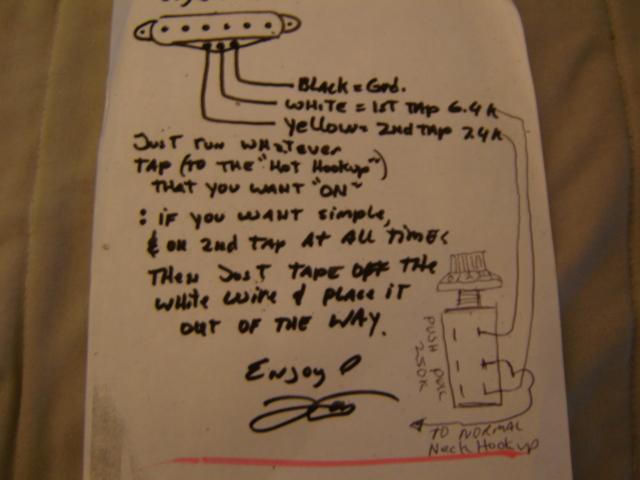 BLACK = Grd.
WHITE = 1ST TAP 6.4K
Yellow = 2nd TAP 7.4K
Just run whatever
TAP (TO THE "HOT HOOKUP")
THAT YOU WANT "ON"
: IF YOU WANT simple,
& on 2nd TAP AT ALL TIMES
Then Just TAPE OFF THE
white wire & place it
OUT OF THE WAY.
Enjoy!
PUSH PULL
250K
TO NORMAL
Neck Hookup